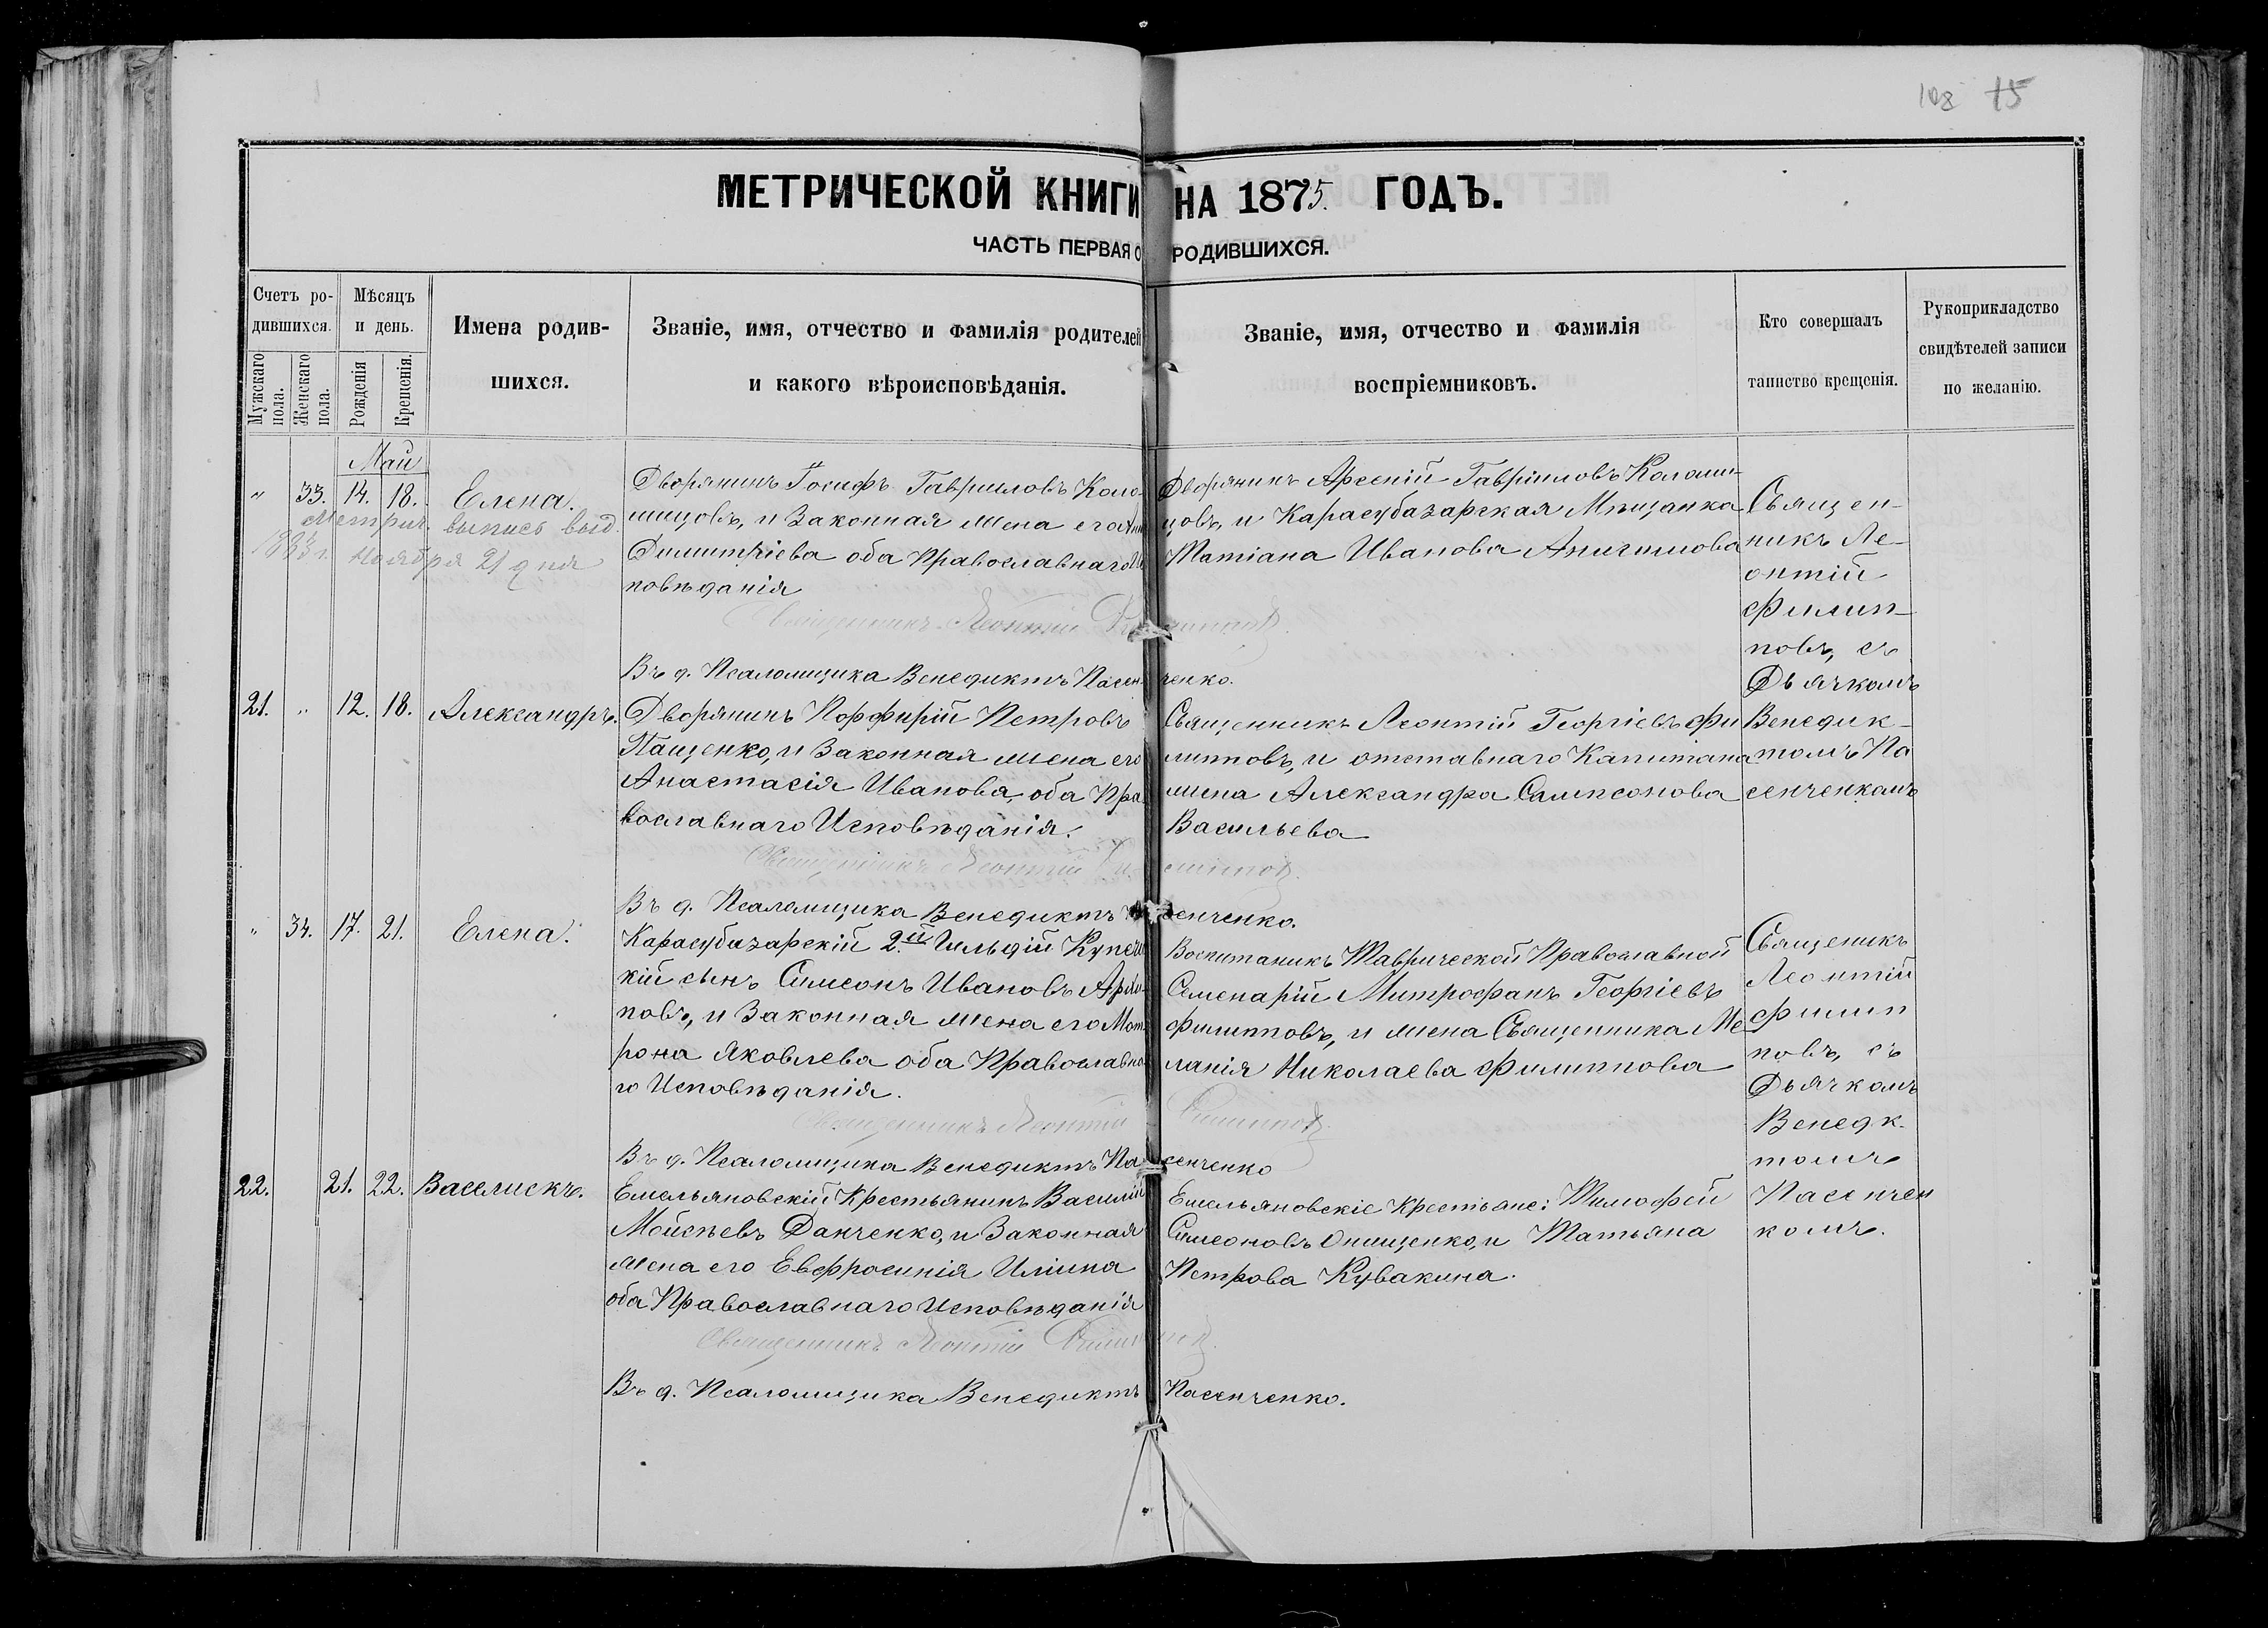 108 75
МЕТРИЧЕСКОЙ КНИГИ НА 1875. ГОДЪ.
ЧАСТЬ ПЕРВАЯ О РОДИВШИХСЯ.
Счетъ ро-
дившихся.
Мужскаго пола.
Женскаго пола.
Мѣсяцъ
и день.
Рожденія
Крещенія.
Имена родив-
шихся.
Званіе, имя, отчество и фамилія родителей
и какого вѣроисповѣданія.
Званіе, имя, отчество и фамилія
воспріемниковъ.
Кто совершалъ
таинство крещенія.
Рукоприкладство
свидѣтелей записи
по желанію.
Май
" 33. 14. 18. Елена.
Метрич. выпись выд.
Ноября 21 дня
Дворянинъ Іосифъ Гавриловъ Коло-
мицовъ, и Законная жена его
Димитріева оба Православнаго Ис
повѣданія
Священникъ Леонтій Филипповъ.
Въ д. Псаломщика Венедиктъ Пасенченко.
Дворянинъ Арсеній Гавріиловъ Коломи-
цовъ, и Карасубазарская Мѣщанка
Татіана Иванова
Священ-
никъ Ле-
онтій
Филип-
повъ, съ
Дьячкомъ
Венедик-
томъ Па
сенченкомъ
21. " 12. 18. Александръ.
Дворянинъ Порфирій Петровъ
Пащенко, и Законная жена его
Анастасія Иванова, оба Пра
вославнаго Исповѣданія.
Священникъ Леонтій Филипповъ.
Въ д. Псаломщика Венедиктъ Пасенченко.
Священникъ Леонтій Георгіевъ Фи
липповъ, и отставнаго Капитана
жена Александра Сампсонова
Васильева
" 34. 17. 21. Елена.
Карасубазарскій 2.й Гильдій Купечес
кій сынъ Симеонъ Ивановъ
повъ, и Законная жена его Мат
рона Яковлева оба Православна
го Исповѣданія.
Священникъ Леонтій Филипповъ.
Въ д. Псаломщика Венедиктъ Пасенченко
Воспитаникъ Таврической Православной
Семенаріи Митрофанъ Георгіевъ
Филипповъ, и жена Священника Ме
ланія Николаева Филиппова
Священикъ
Леонтій
Филип
повъ, съ
Дьячкомъ
Венедк-
томъ
Пасенчен
комъ.
22. 21. 22. Василискъ.
Емельяновскій Крестьянинъ Василій
Мойсѣевъ Данченко, и Законная
жена его Евфросинія Иліина
оба Православнаго Исповѣданія
Священникъ Леонтій Филипповъ.
Въ д. Псаломщика Венедиктъ Пасенченко.
Емельяновскіе Крестьяне: Тимофей
Симеоновъ Онищенко, и Татьяна
Петрова Кувакина.